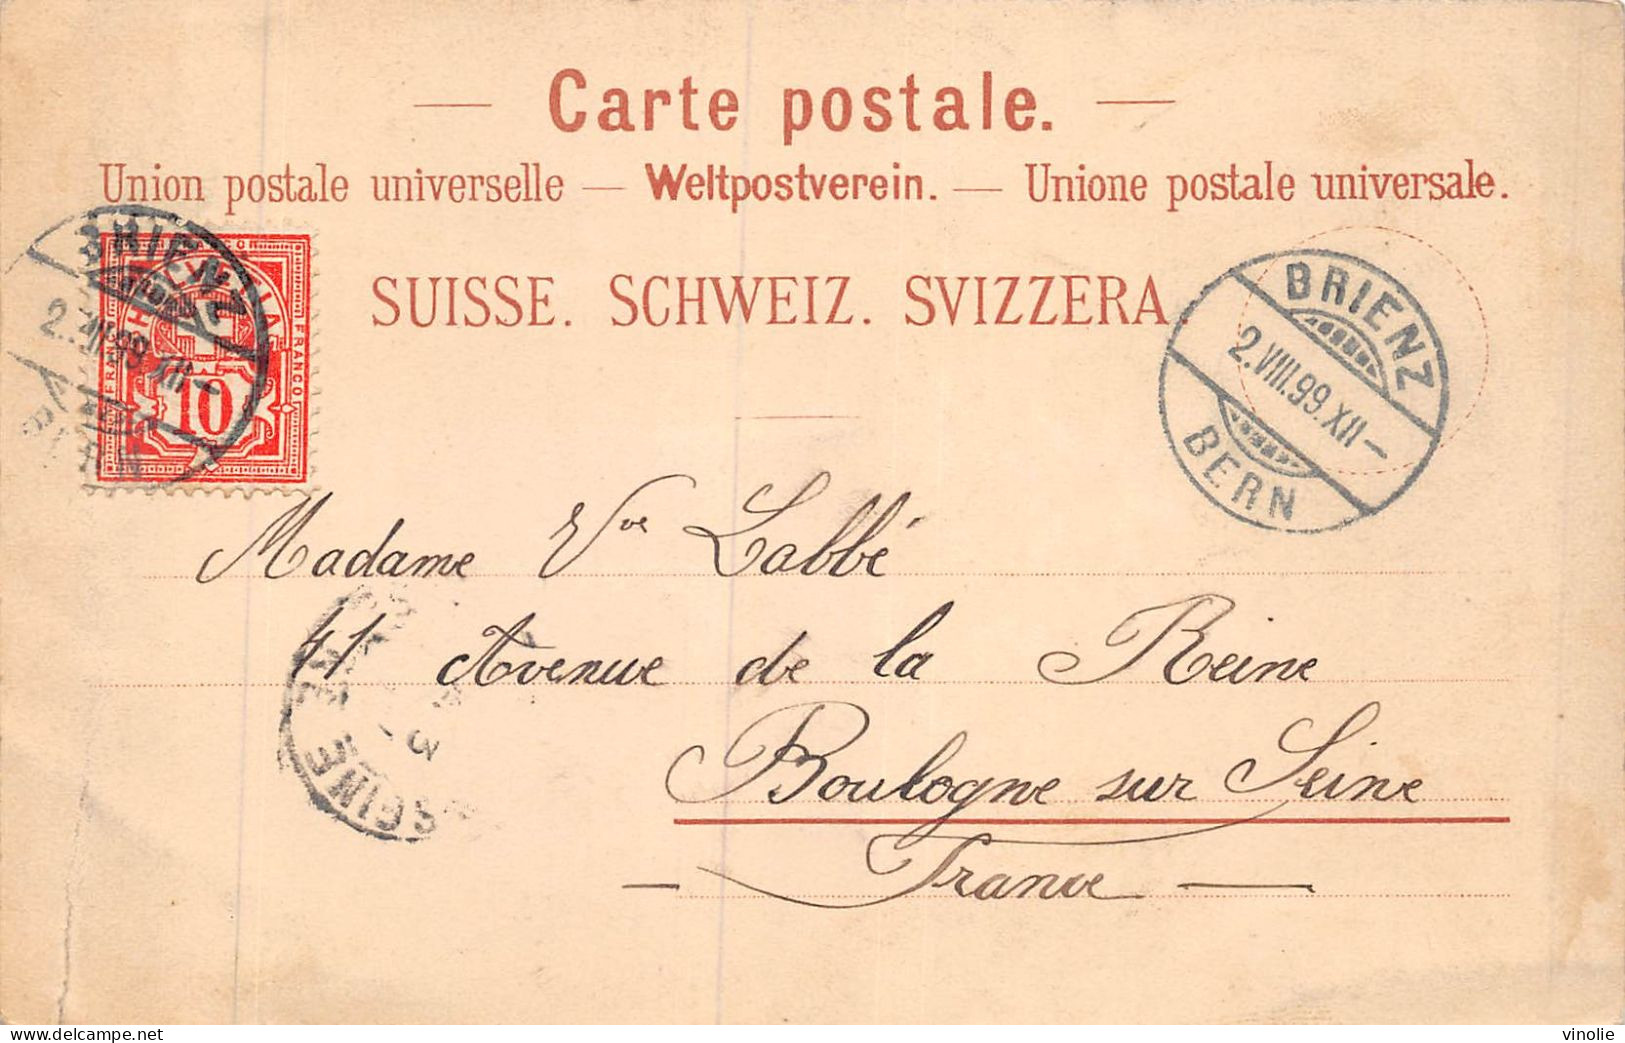 Carte postale.
Union postale universelle — Weltpostverein. — Unione postale universale.
SUISSE. SCHWEIZ. SVIZZERA.
BRIENZ
2.VIII.99.XII–
BERN
FRANCO
HELVETIA
FRANCO
10
BRIENZ
2.VIII.99.XII–
BERN
Madame Vve Labbé
41 Avenue de la Reine
Boulogne sur Seine
— France —
SEINE
3
delcampe.net
vinolie